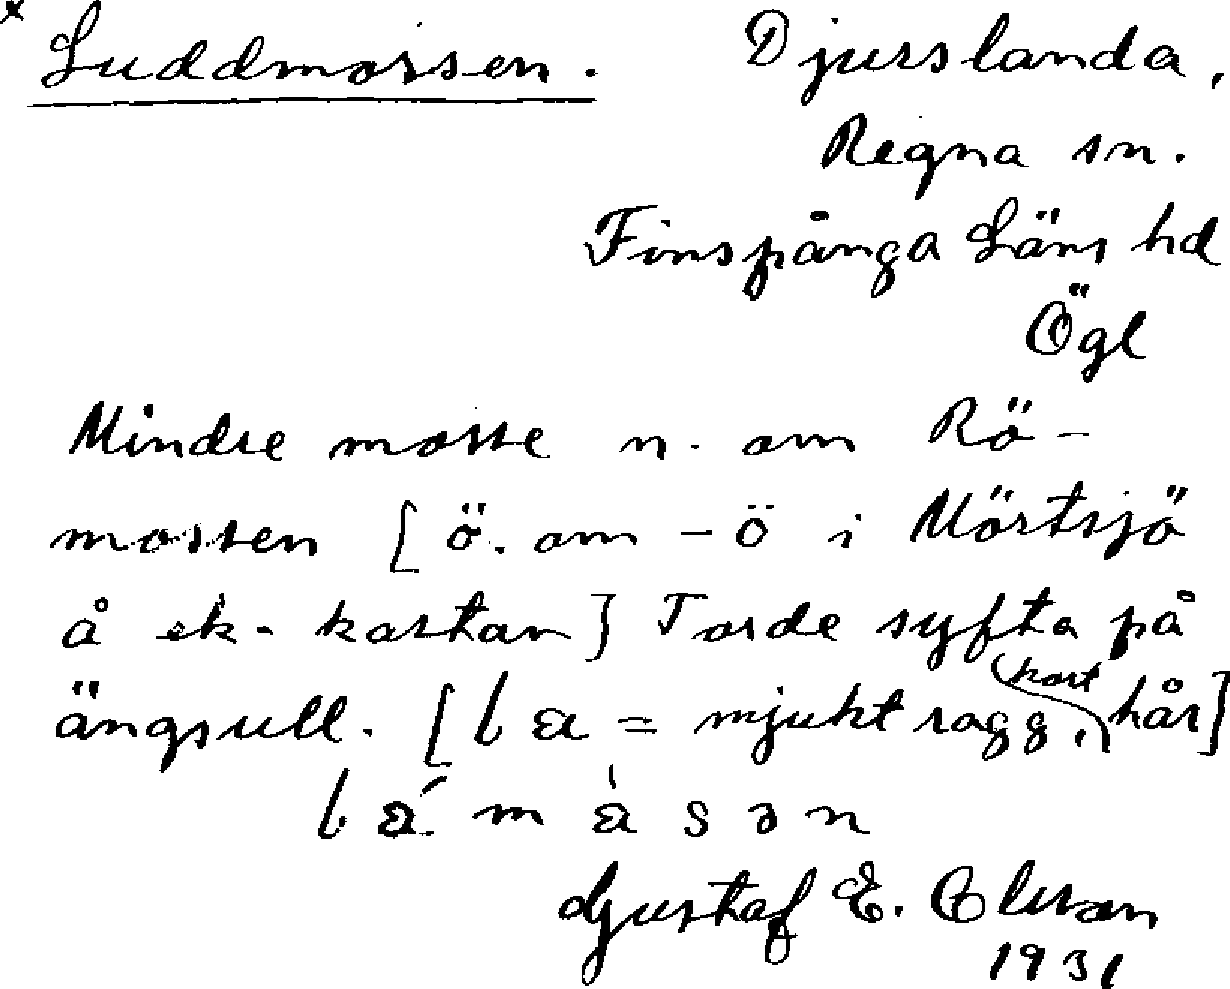 x Luddmossen. Djurslanda,
Regna sn.
Finspånga Läns hd
Ögl
Mindre mosse n. om Rö-
mossen [ö. om -ö i Mörtsjö
å ek-kartan] Torde syfta på
ängsull. [ = mjukt ragg, kort hår]
Gustaf E. Olsson
1931